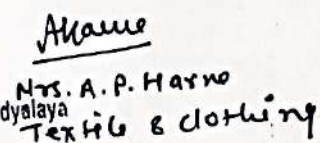 Mrs. A. P. Harne
dyalaya
Textile & clothing